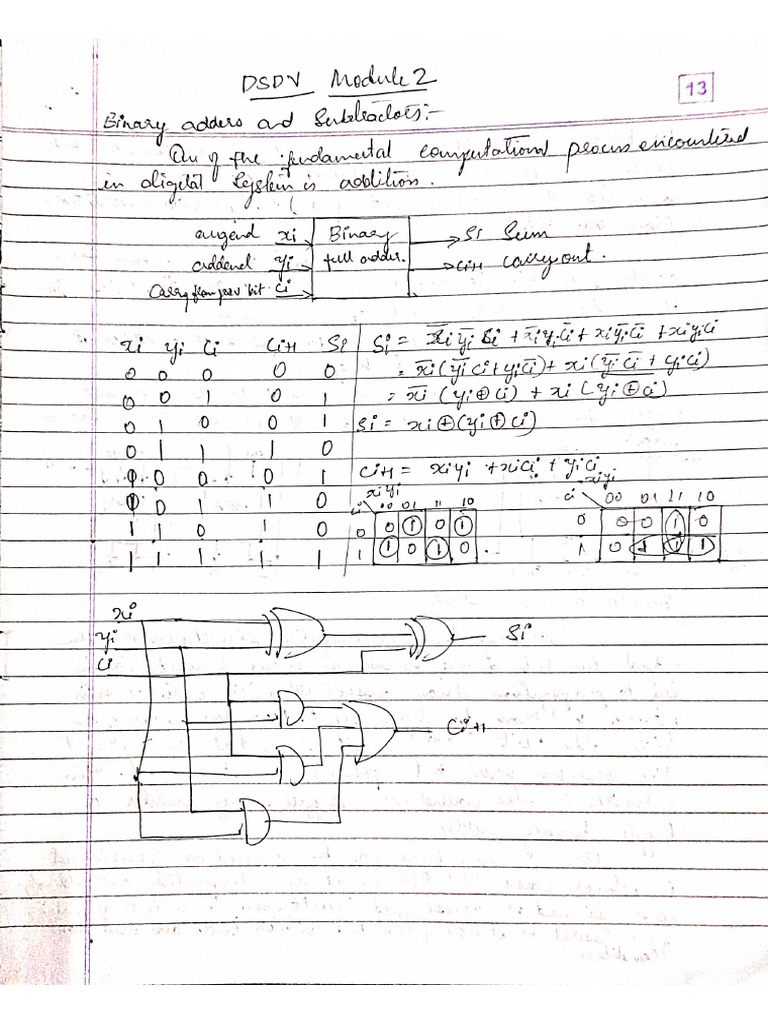 DSDV Module 2
13
Binary adders and Subtractors:-
On of the fundamental computational process encountered
in digital System is addition.
augend xi Binary Si Sum
addend yi full adder. Ci+1 carry out.
Carry from prev bit Ci
xi yi Ci Ci+1 Si
0 0 0 0 0
0 0 1 0 1
0 1 0 0 1
0 1 1 1 0
1 0 0 0 1
1 0 1 1 0
1 1 0 1 0
1 1 1 1 1
Si = x̅i y̅i Ci + x̅i yi C̅i + xi y̅i C̅i + xi yi Ci
= x̅i (y̅i Ci + yi C̅i) + xi (y̅i C̅i + yi Ci)
= x̅i (yi ⊕ Ci) + xi (y̅i̅ ⊕̅ C̅i̅)
Si = xi ⊕ (yi ⊕ Ci)
Ci+1 = xi yi + xi Ci + yi Ci
Ci xi yi 00 01 11 10
0 0 1 0 1
1 1 0 1 0.
Ci xi yi 00 01 11 10
0 0 0 1 0
1 0 1 1 1
xi
yi
Ci
Si
Ci+1